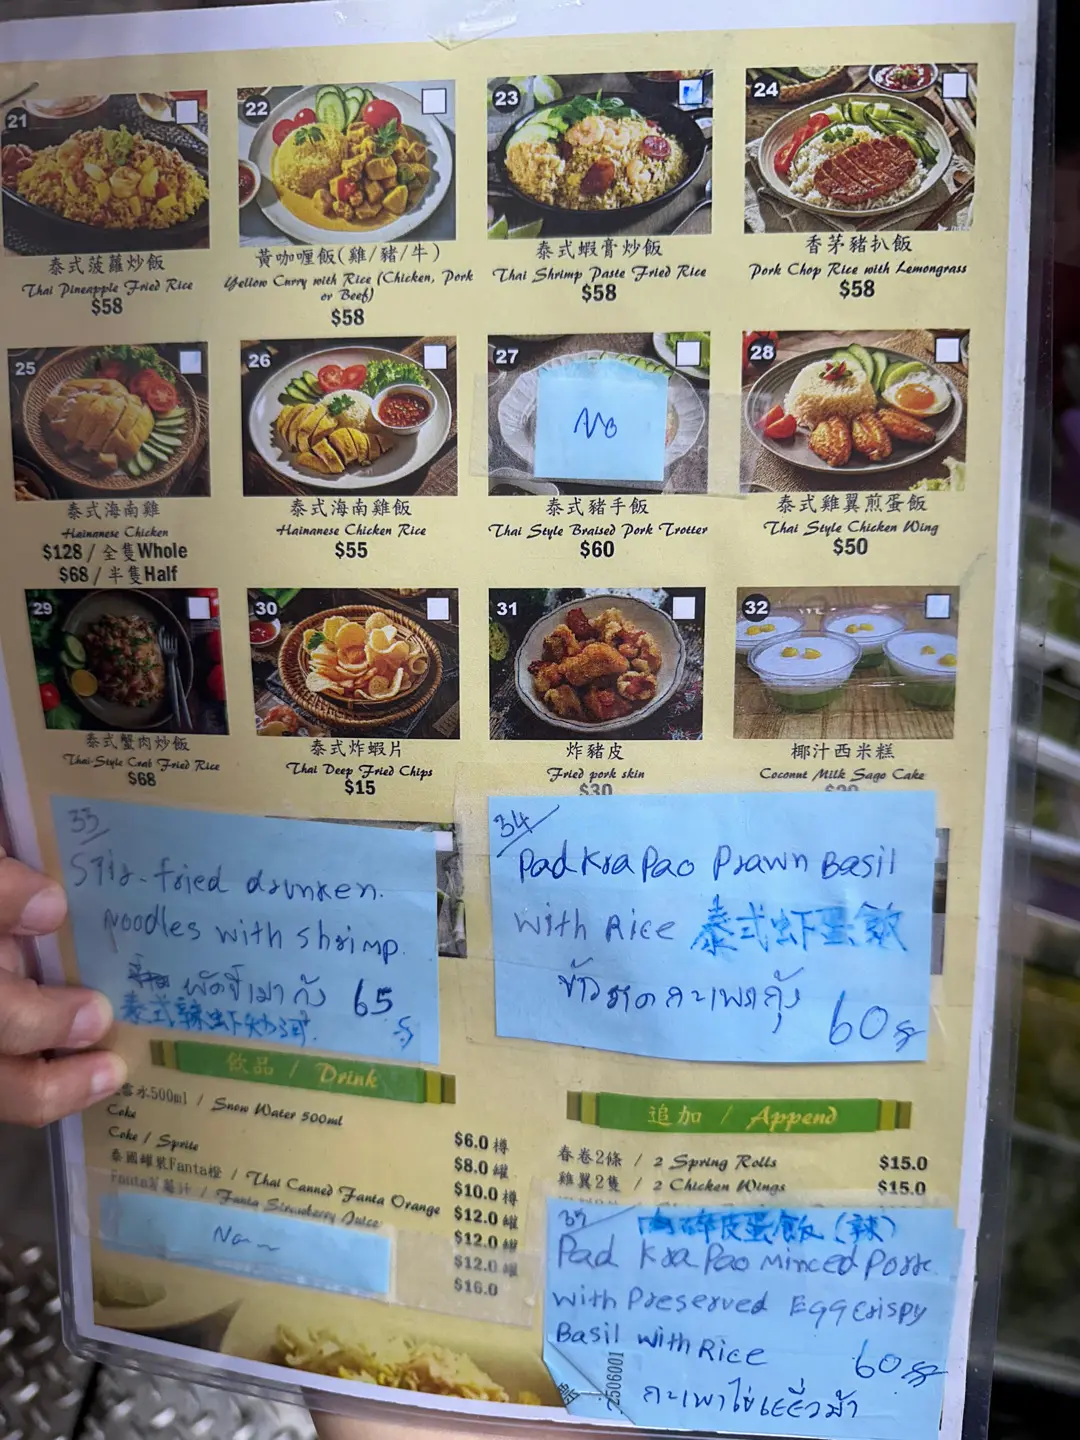 21
22
23
24
泰式菠蘿炒飯
Thai Pineapple Fried Rice
$58
黃咖喱飯(雞/豬/牛)
Yellow Curry with Rice (Chicken, Pork
or Beef)
$58
泰式蝦膏炒飯
Thai Shrimp Paste Fried Rice
$58
香茅豬扒飯
Pork Chop Rice with Lemongrass
$58
25
26
27
No
28
泰式海南雞
Hainanese Chicken
$128 / 全隻Whole
$68 / 半隻Half
泰式海南雞飯
Hainanese Chicken Rice
$55
泰式豬手飯
Thai Style Braised Pork Trotter
$60
泰式雞翼煎蛋飯
Thai Style Chicken Wing
$50
29
30
31
32
泰式蟹肉炒飯
Thai-Style Crab Fried Rice
$68
泰式炸蝦片
Thai Deep Fried Chips
$15
炸豬皮
Fried pork skin
$30
椰汁西米糕
Coconut Milk Sago Cake
33
Stir-fried drunken
Noodles with shrimp
ผัดขี้เมากุ้ง 65
泰式辣虾炒河
34
Pad Kra Pao Prawn Basil
with Rice 泰式虾蛋飯
60
飲品 / Drink
水500ml / Snow Water 500ml
Coke
$6.0 樽
Coke / Sprite
$8.0 罐
$10.0 樽
泰國罐裝Fanta橙 / Thai Canned Fanta Orange
$12.0 罐
/ Fanta Strawberry Juice
$12.0 罐
$12.0 罐
$16.0
追加 / Append
春卷2條 / 2 Spring Rolls $15.0
雞翼2隻 / 2 Chicken Wings $15.0
肉碎皮蛋飯(辣)
Pad Kra Pao Minced Pork
with Preserved Egg Crispy
Basil with Rice 60
2506001